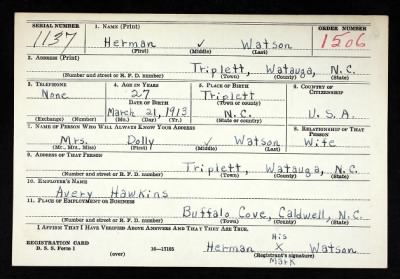 SERIAL NUMBER 1. NAME (Print) ORDER NUMBER
1137 Herman ✓ Watson 1506
(First) (Middle) (Last)
2. ADDRESS (Print)
Triplett, Watauga, N.C.
(Number and street or R. F. D. number) (Town) (County) (State)
3. TELEPHONE 4. AGE IN YEARS 5. PLACE OF BIRTH 6. COUNTRY OF CITIZENSHIP
None 27 Triplett
DATE OF BIRTH (Town or county)
March 21, 1913 N.C. U.S.A.
(Exchange) (Number) (Mo.) (Day) (Yr.) (State or country)
7. NAME OF PERSON WHO WILL ALWAYS KNOW YOUR ADDRESS 8. RELATIONSHIP OF THAT PERSON
Mrs. Dolly Watson Wife
(Mr., Mrs., Miss) (First) (Middle) (Last)
9. ADDRESS OF THAT PERSON
Triplett, Watauga, N.C.
(Number and street or R. F. D. number) (Town) (County) (State)
10. EMPLOYER'S NAME
Avery Hawkins
11. PLACE OF EMPLOYMENT OR BUSINESS
Buffalo Cove, Caldwell, N.C.
(Number and street or R. F. D. number) (Town) (County) (State)
I AFFIRM THAT I HAVE VERIFIED ABOVE ANSWERS AND THAT THEY ARE TRUE.
His
REGISTRATION CARD Herman X Watson
D. S. S. Form 1 16—17105 (Registrant's signature)
(over) Mark